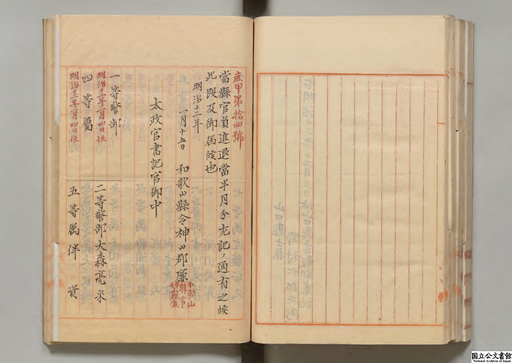 庶甲第拾四號
當縣官員進退當半月分左記ノ通有之候
此段及御届候也
明治十二年
一月十五日 和歌山縣令神山郡廉
太政官書記官御中
一等警部
明治十二年一月四日任
二等警部大森
四等屬
明治十二年一月四日任
五等屬伴
国立公文書館
National Archives of Japan